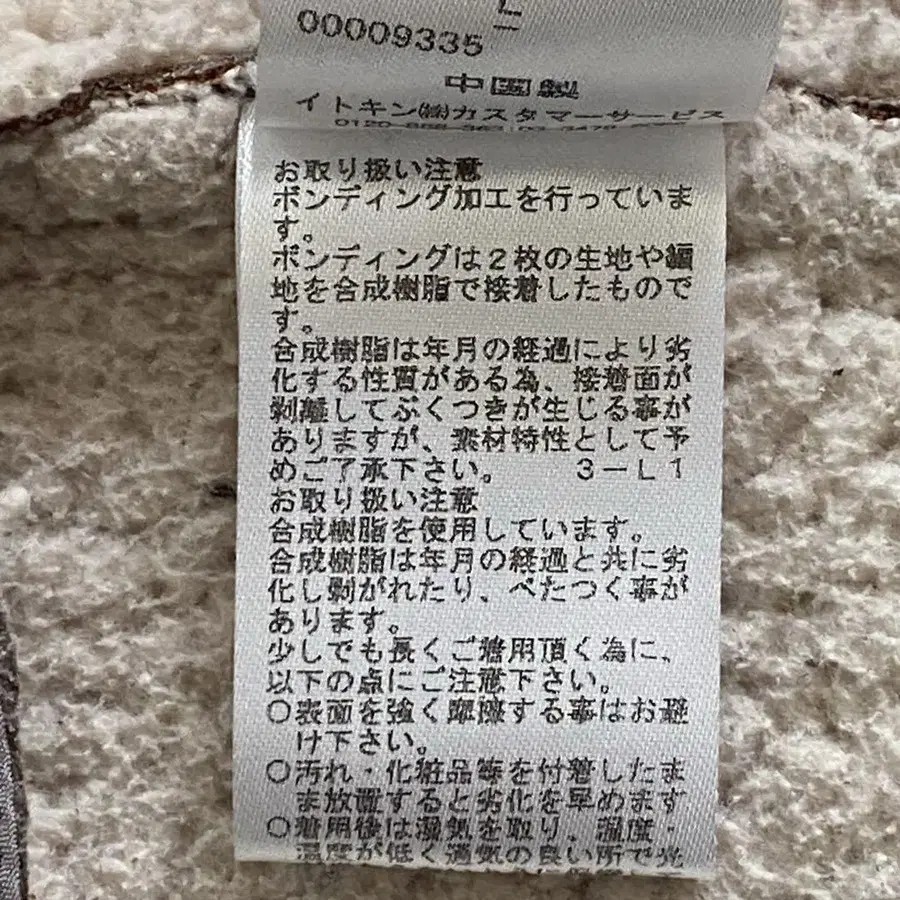 00009335
中国製
イトキン㈱カスタマーサービス
お取り扱い注意
ボンディング加工を行っていま
す。
ボンディングは2枚の生地や編
地を合成樹脂で接着したもので
す。
合成樹脂は年月の経過により劣
化する性質がある為、接着面が
剥離してぶくつきが生じる事が
ありますが、素材特性として予
めご了承下さい。 3-L1
お取り扱い注意
合成樹脂を使用しています。
合成樹脂は年月の経過と共に劣
化し剥がれたり、べたつく事が
あります。
少しでも長くご着用頂く為に、
以下の点にご注意下さい。
○表面を強く摩擦する事はお避
け下さい。
○汚れ・化粧品等を付着したま
ま放置すると劣化を早めます
○着用後は湿気を取り、湿度・
温度が低く通気の良い所で光